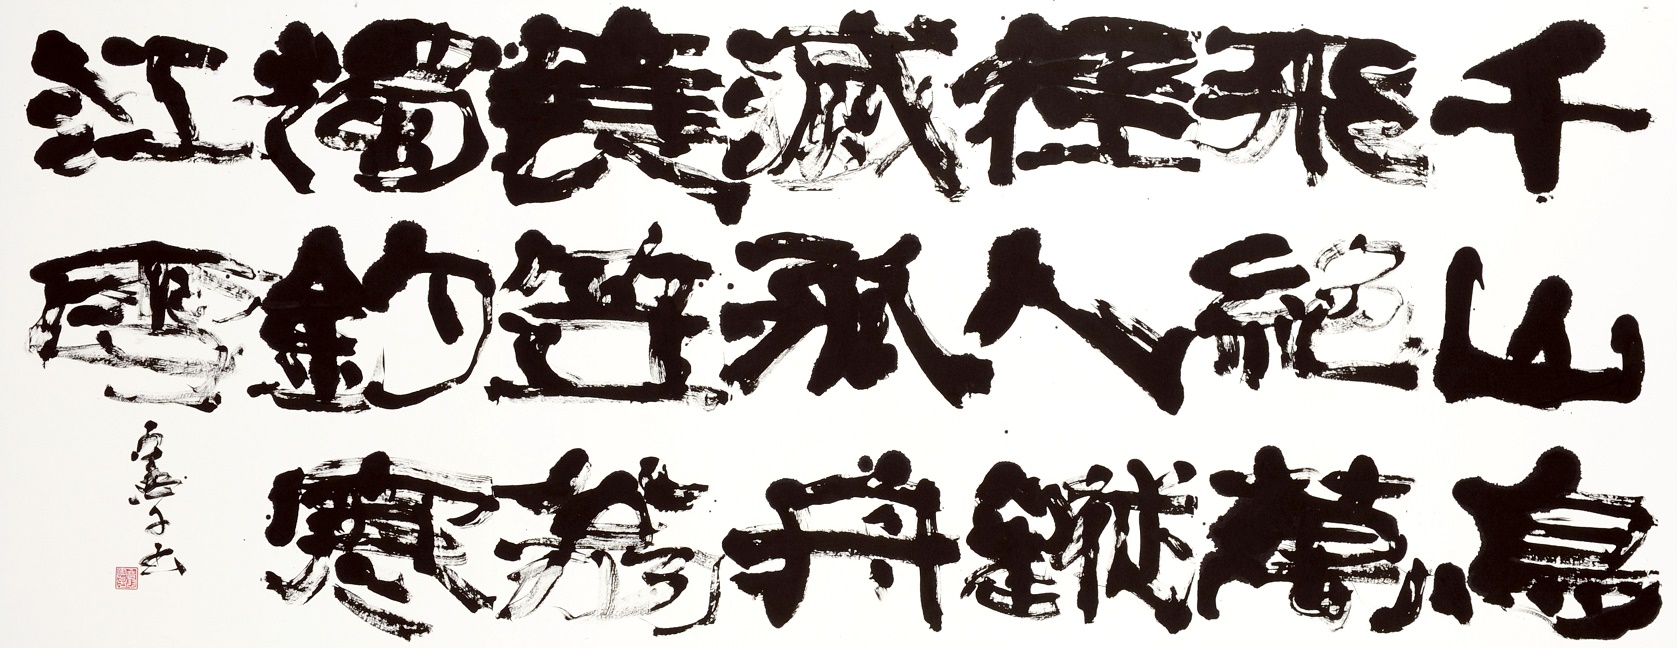 千山鳥
飛絶萬
徑人蹤
滅孤舟
蓑笠翁
獨釣寒
江雪